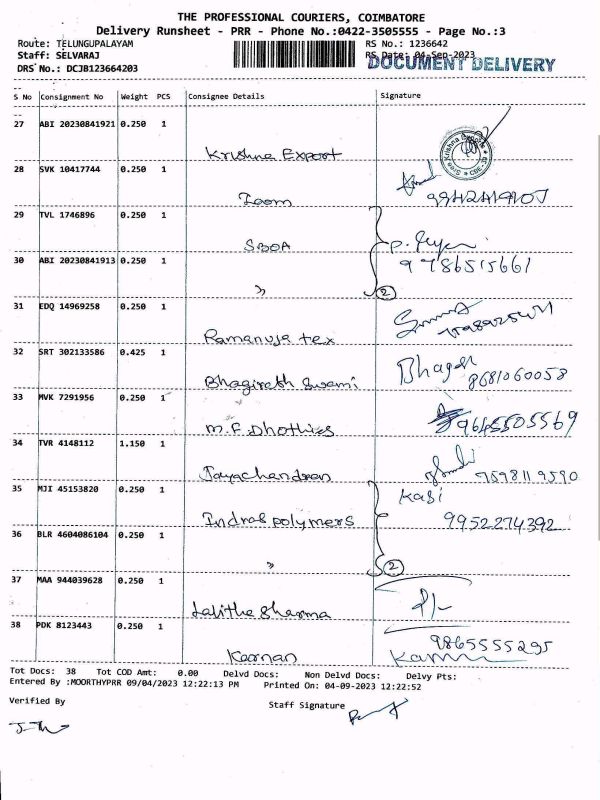 THE PROFESSIONAL COURIERS, COIMBATORE
Delivery Runsheet - PRR - Phone No.:0422-3505555 - Page No.:3
Route: TELUNGUPALAYAM RS No.: 1236642
Staff: SELVARAJ RS Date: 04-Sep-2023
DRS No.: DCJB123664203 DOCUMENT DELIVERY
S No Consignment No Weight PCS Consignee Details Signature
27 ABI 20230841921 0.250 1
Krishna Export
28 SVK 10417744 0.250 1
29 TVL 1746896 0.250 1
SBOA
30 ABI 20230841913 0.250 1
9786515661
" 2
31 EDQ 14969258 0.250 1
Ramanuja tex
32 SRT 302133586 0.425 1
Bhagirath Swami 8681060058
33 MVK 7291956 0.250 1
M.F. Dhothies
34 TVR 4148112 1.150 1
Jayachandran
35 MJI 45153820 0.250 1 Kasi
Indras polymers 9952274392
36 BLR 4604086104 0.250 1
" 2
37 MAA 944039628 0.250 1
Lalitha Sharma
38 PDK 8123443 0.250 1
9865555295
Kannan
Tot Docs: 38 Tot COD Amt: 0.00 Delvd Docs: Non Delvd Docs: Delvy Pts:
Entered By :MOORTHYPRR 09/04/2023 12:22:13 PM Printed On: 04-09-2023 12:22:52
Verified By Staff Signature